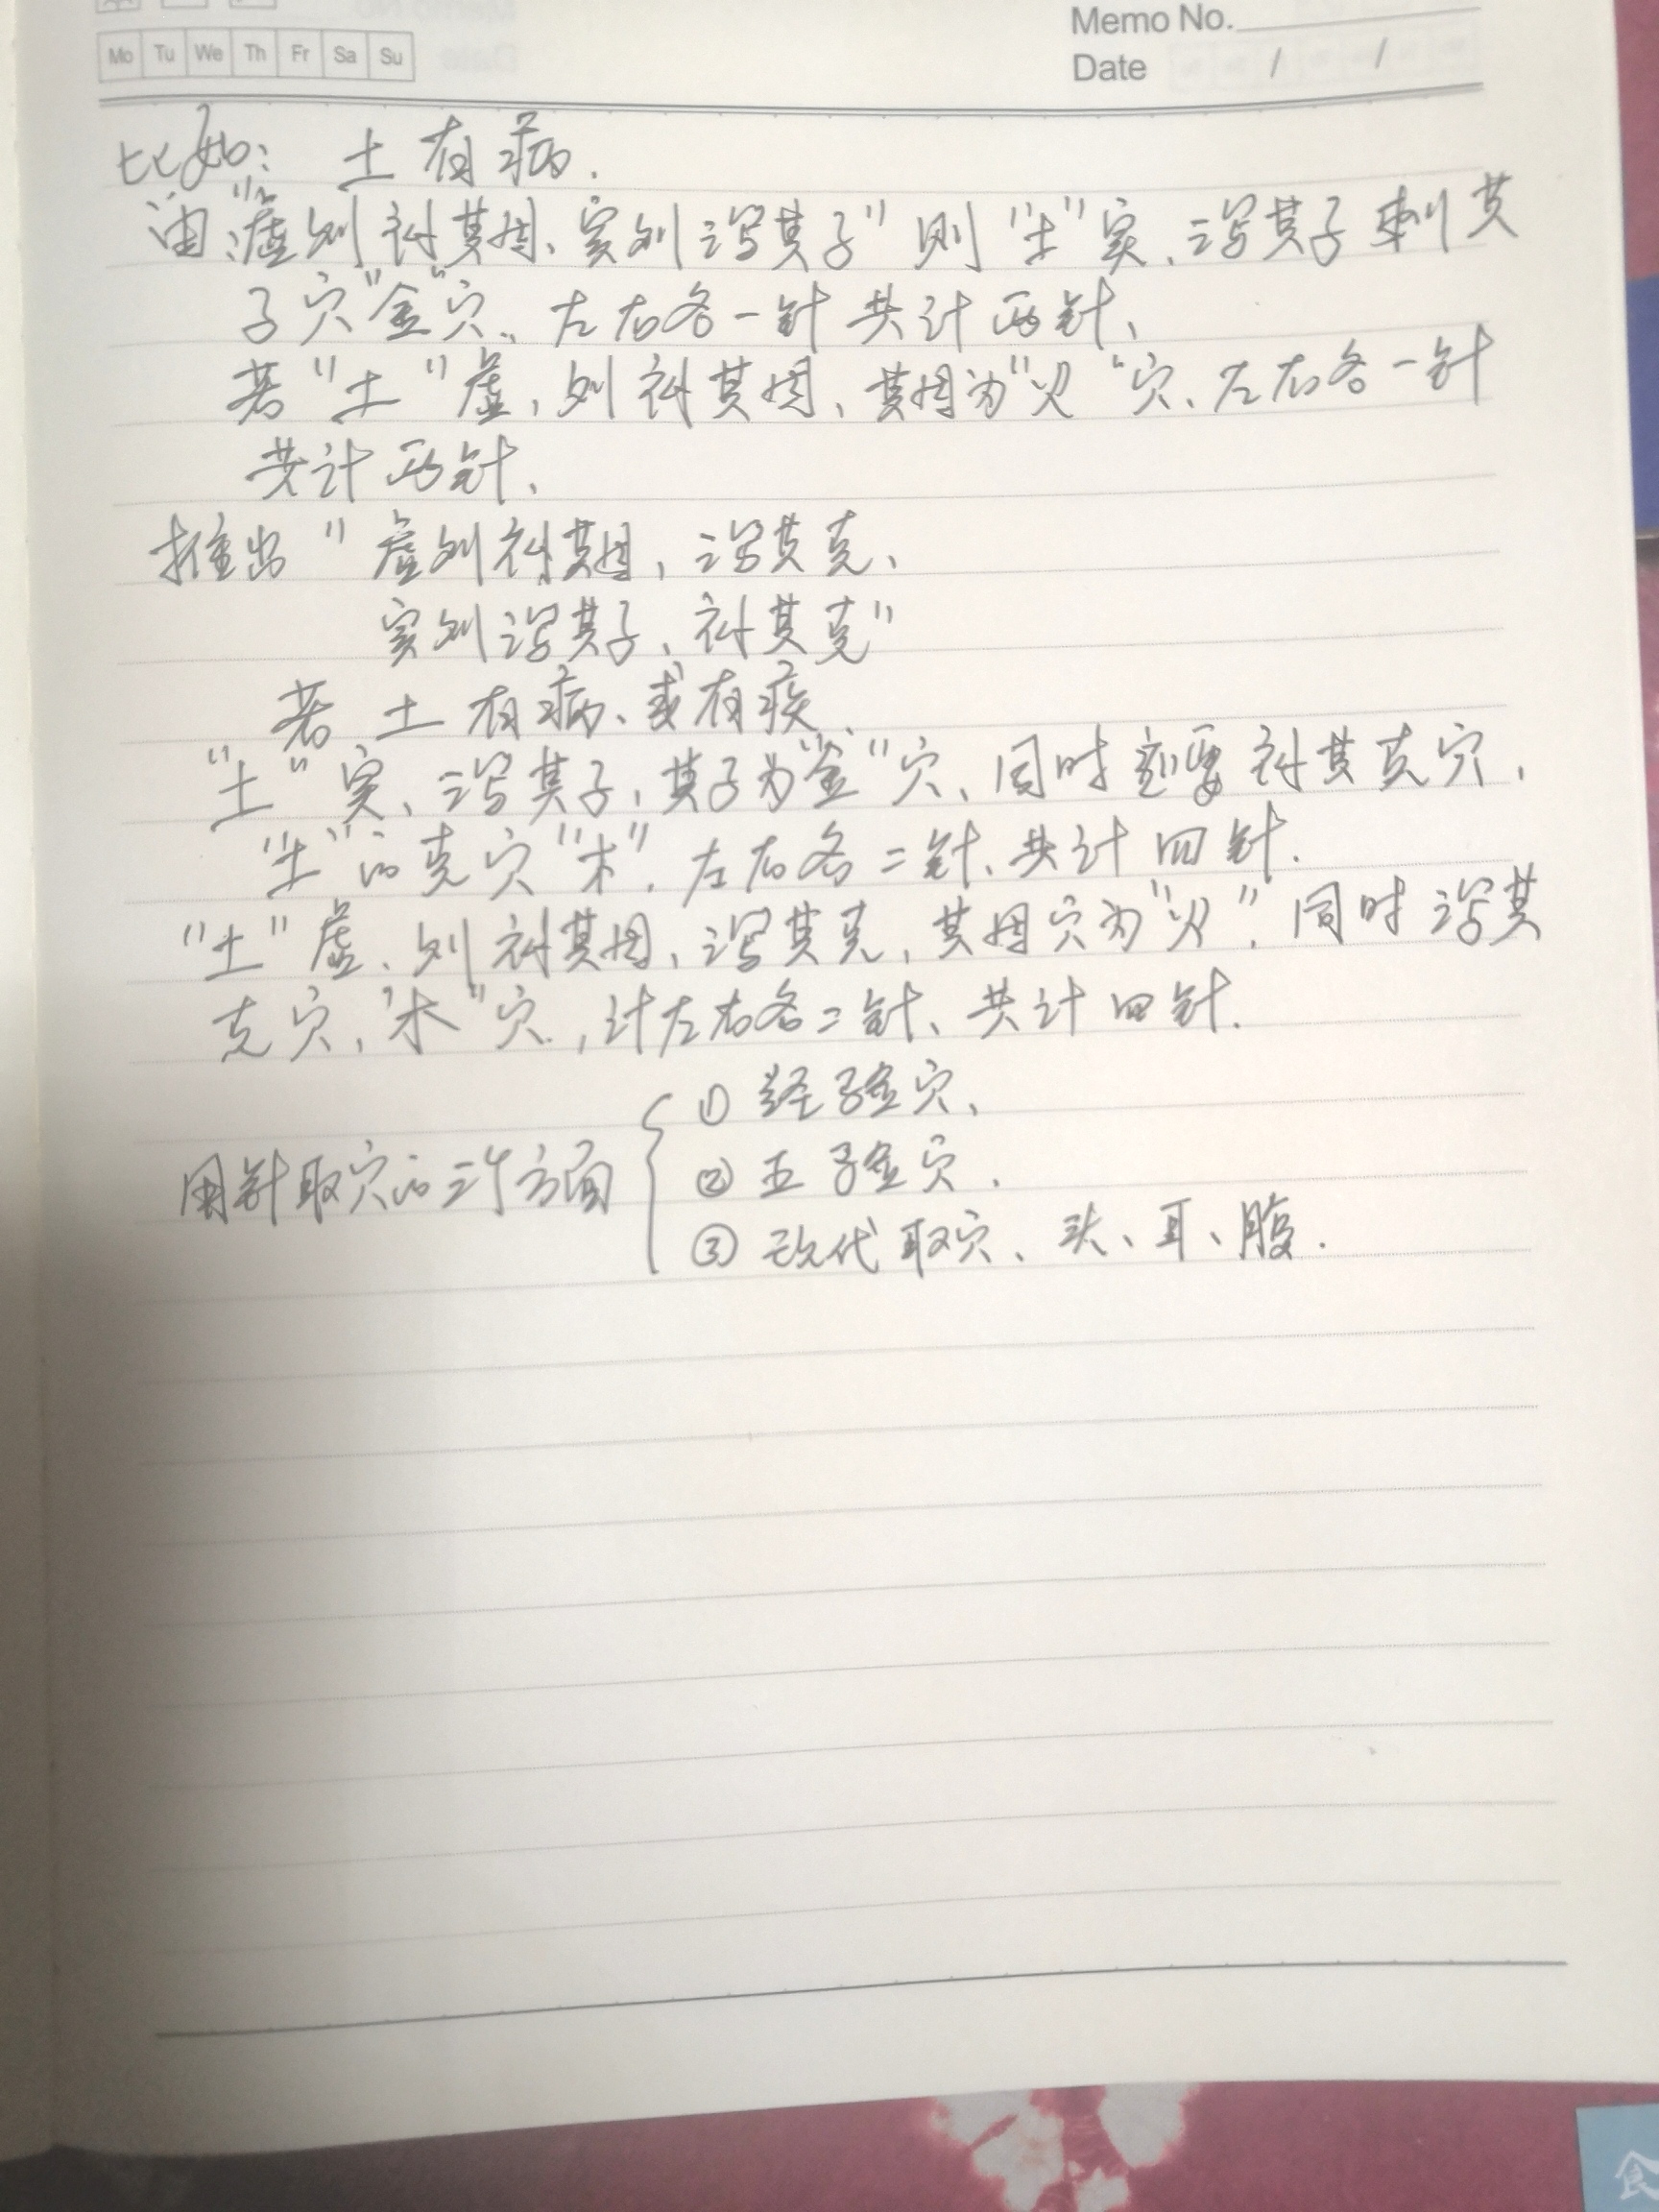 Memo No.
Mo Tu We Th Fr Sa Su
Date / /
比如: 土有病.
由:"虚则补其母、实则泻其子"则"土"实、泻其子刺其
子穴"金"穴、左右各一针共计两针、
若"土"虚,则补其母、其母为"火"穴、左右各一针
共计两针、
推出"虚则补其母,泻其克、
实则泻其子、补其克"
若土有病、或有疾.
"土"实、泻其子,其子为"金"穴、同时要补其克穴,
"土"的克穴"木",左右各二针、共计四针.
"土"虚、则补其母,泻其克,其母穴为"火",同时泻其
克穴,"木"穴,计左右各二针、共计四针.
用针取穴的三个方面
① 经验穴、
② 五验穴.
③ 现代取穴、头、耳、腹.
食